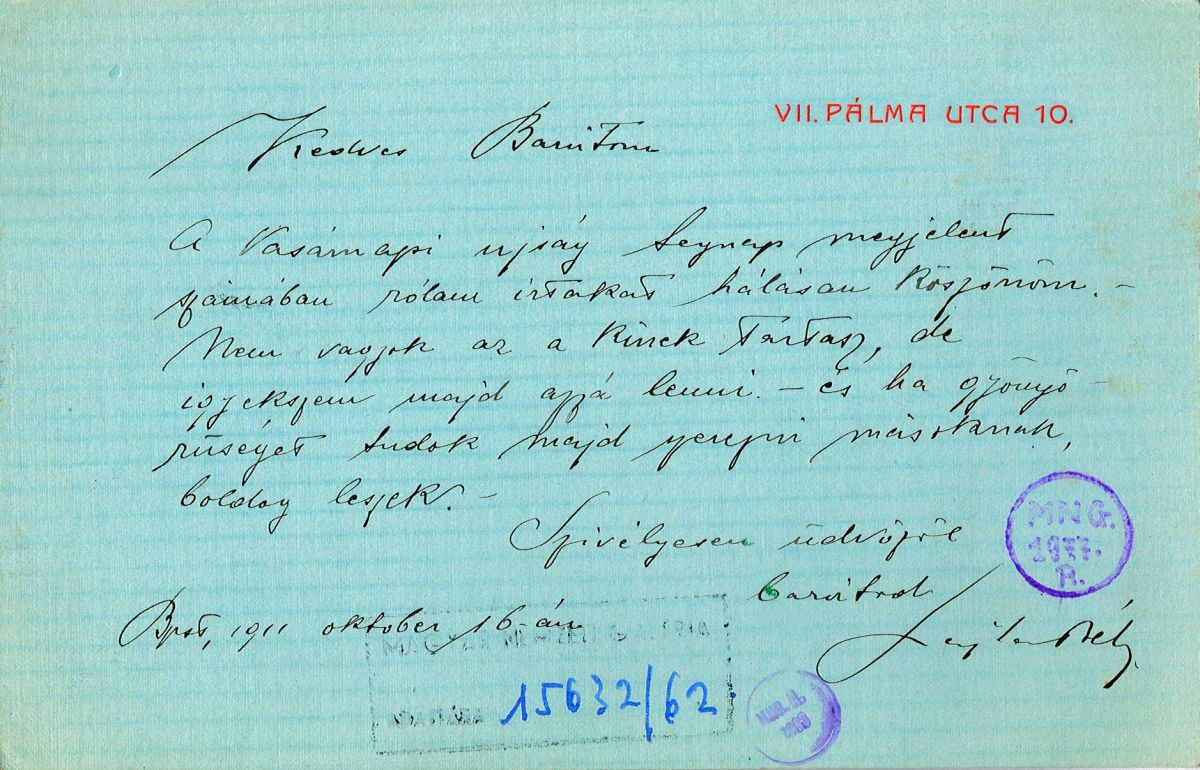 VII. PÁLMA UTCA 10.
Kedves Barátom
A Vasárnapi ujság tegnap megjelent
számában rólam írtakat hálásan köszönöm. –
Nem vagyok az a kinek tartasz, de
igyekszem majd azzá lenni. – és ha gyönyö-
rűséget tudok majd szerezni másoknak,
boldog leszek. –
Szivélyesen üdvözöl
barátod
Bpst, 1911 október 16-án
MNG.
1977.
R.
MAGYAR NEMZETI GALÉRIA
15632/62.